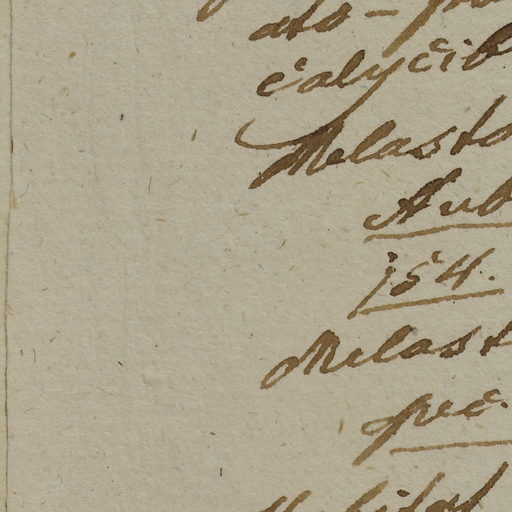 ato-
calycib
Melasto
Aub
154.
Melast
spec.
Habitat